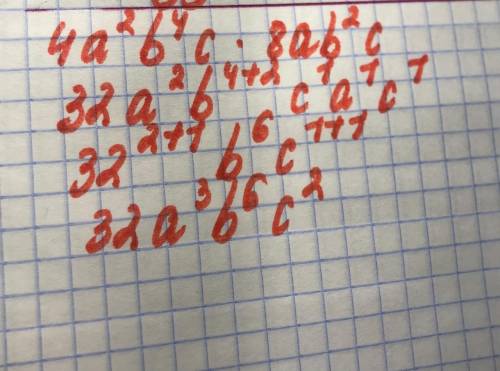 4a²b⁴c · 8ab²c
32a²b⁴⁺²c¹a¹c¹
32²⁺¹b⁶c¹⁺¹
32a³b⁶c²